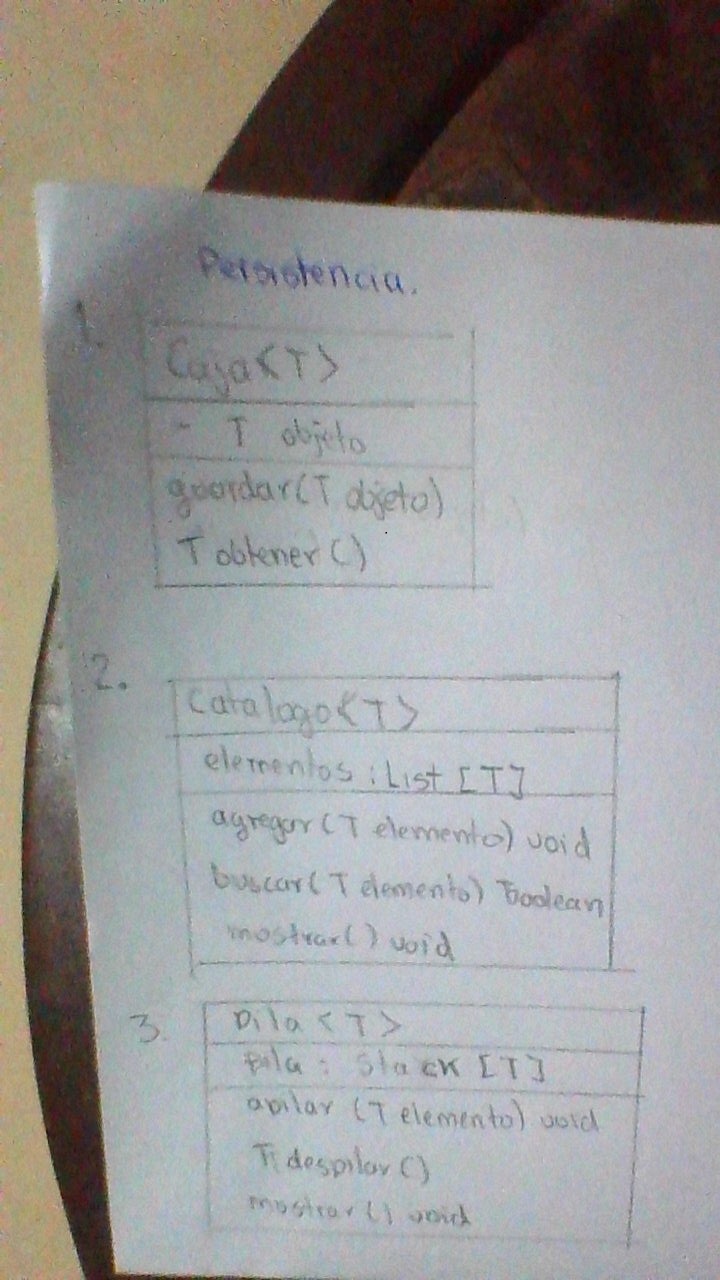 Persistencia.
1.
Caja<T>
- T objeto
guardar(T objeto)
T obtener()
2.
Catalogo<T>
elementos : List [T]
agregar(T elemento) void
buscar(T elemento) Boolean
mostrar() void
3.
Pila <T>
pila : Stack [T]
apilar (T elemento) void
T despilar()
mostrar() void